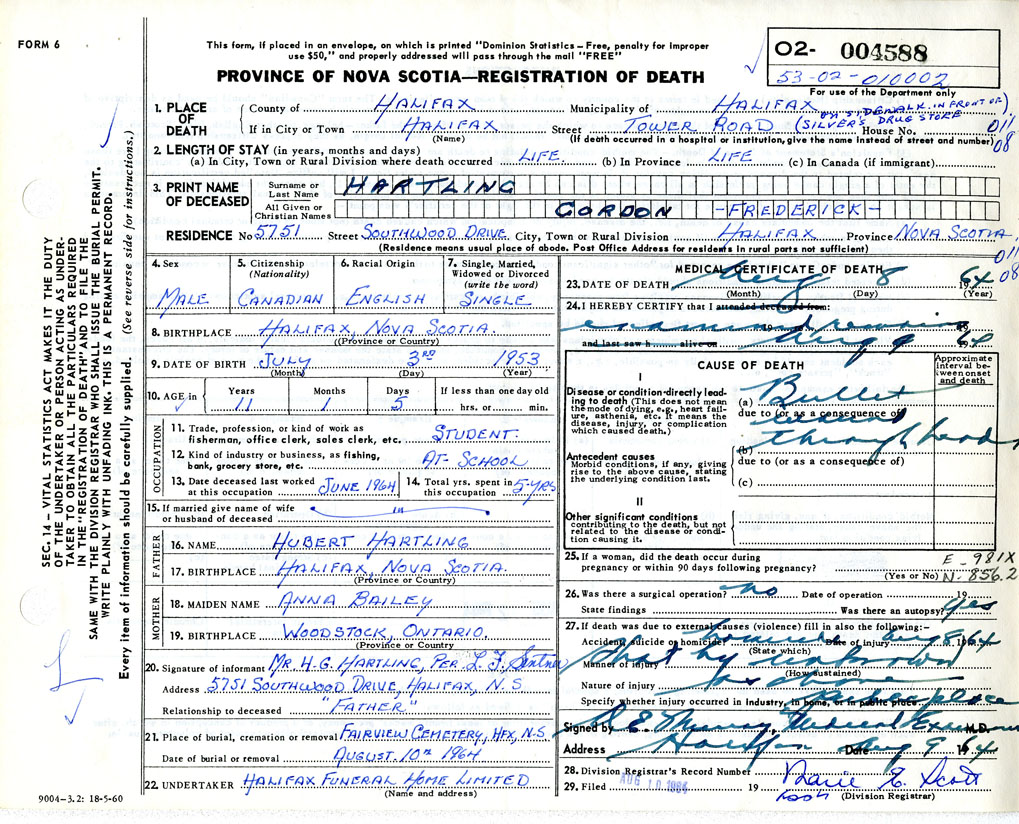 FORM 6
This form, if placed in an envelope, on which is printed "Dominion Statistics – Free, penalty for improper
use $50," and properly addressed will pass through the mail "FREE"
PROVINCE OF NOVA SCOTIA—REGISTRATION OF DEATH
O2- 004588
53-02-010002
For use of the Department only
1. PLACE OF DEATH
County of HALIFAX Municipality of HALIFAX
ON SIDEWALK IN FRONT OF
(SILVER'S DRUG STORE
If in City or Town HALIFAX Street TOWER ROAD House No.
(Name) (If death occurred in a hospital or institution, give the name instead of street and number)
011
08
2. LENGTH OF STAY (in years, months and days)
(a) In City, Town or Rural Division where death occurred LIFE (b) In Province LIFE (c) In Canada (if immigrant)
3. PRINT NAME OF DECEASED
Surname or Last Name HARTLING
All Given or Christian Names GORDON -FREDERICK-
RESIDENCE No 5751 Street SOUTHWOOD DRIVE City, Town or Rural Division HALIFAX Province NOVA SCOTIA
(Residence means usual place of abode. Post Office Address for residents in rural parts not sufficient)
011
08
4. Sex MALE
5. Citizenship (Nationality) CANADIAN
6. Racial Origin ENGLISH
7. Single, Married, Widowed or Divorced (write the word) SINGLE
8. BIRTHPLACE HALIFAX, NOVA SCOTIA.
(Province or Country)
9. DATE OF BIRTH JULY 3RD 1953
(Month) (Day) (Year)
10. AGE in Years 11 Months 1 Days 5 If less than one day old hrs. or min.
OCCUPATION
11. Trade, profession, or kind of work as
fisherman, office clerk, sales clerk, etc. STUDENT.
12. Kind of industry or business, as fishing,
bank, grocery store, etc. AT-SCHOOL
13. Date deceased last worked at this occupation JUNE 1964
14. Total yrs. spent in this occupation 5-YRS
15. If married give name of wife
or husband of deceased
FATHER
16. NAME HUBERT HARTLING
17. BIRTHPLACE HALIFAX, NOVA SCOTIA.
(Province or Country)
MOTHER
18. MAIDEN NAME ANNA BAILEY
19. BIRTHPLACE WOODSTOCK, ONTARIO.
(Province or Country)
20. Signature of informant MR. H.G. HARTLING, PER
Address 5751 SOUTHWOOD DRIVE, HALIFAX, N.S
Relationship to deceased "FATHER"
21. Place of burial, cremation or removal FAIRVIEW CEMETERY, HFX, N.S.
Date of burial or removal AUGUST. 10TH 1964
22. UNDERTAKER HALIFAX FUNERAL HOME LIMITED
(Name and address)
9004-3.2: 18-5-60
MEDICAL CERTIFICATE OF DEATH
23. DATE OF DEATH Aug 8 1964
(Month) (Day) (Year)
24. I HEREBY CERTIFY that I attended deceased from:
examined remains 19
and last saw h alive on Aug 9 64
CAUSE OF DEATH
Approximate interval between onset and death
I
Disease or condition directly leading to death (This does not mean the mode of dying, e.g., heart failure, asthenia, etc. It means the disease, injury, or complication which caused death.)
(a) Bullet
due to (or as a consequence of) wound
through head
(b)
Antecedent causes
Morbid conditions, if any, giving rise to the above cause, stating the underlying condition last.
due to (or as a consequence of)
(c)
II
Other significant conditions
contributing to the death, but not related to the disease or condition causing it.
25. If a woman, did the death occur during
pregnancy or within 90 days following pregnancy?
(Yes or No)
E-981X
N-856.2
26. Was there a surgical operation? no Date of operation 19
State findings Was there an autopsy? yes
27. If death was due to external causes (violence) fill in also the following:–
Accident, suicide or homicide? homicide Date of injury Aug 8, 1964
(State which)
Manner of injury shot by unknown
(How sustained)
Nature of injury as above
Specify whether injury occurred in industry, in home, or in public place public place
Signed by Murray, Medical Examiner M.D.
Address Halifax Date Aug 9 1964
28. Division Registrar's Record Number
29. Filed AUG 10 1964 19 Marie E. Scott
(Division Registrar)
SEC. 14 – VITAL STATISTICS ACT MAKES IT THE DUTY
OF THE UNDERTAKER OR PERSON ACTING AS UNDER-
TAKER TO OBTAIN ALL THE PARTICULARS REQUIRED
IN THE "REGISTRATION OF DEATH" AND TO FILE THE
SAME WITH THE DIVISION REGISTRAR WHO SHALL ISSUE THE BURIAL PERMIT.
WRITE PLAINLY WITH UNFADING INK. THIS IS A PERMANENT RECORD.
Every item of information should be carefully supplied. (See reverse side for instructions.)